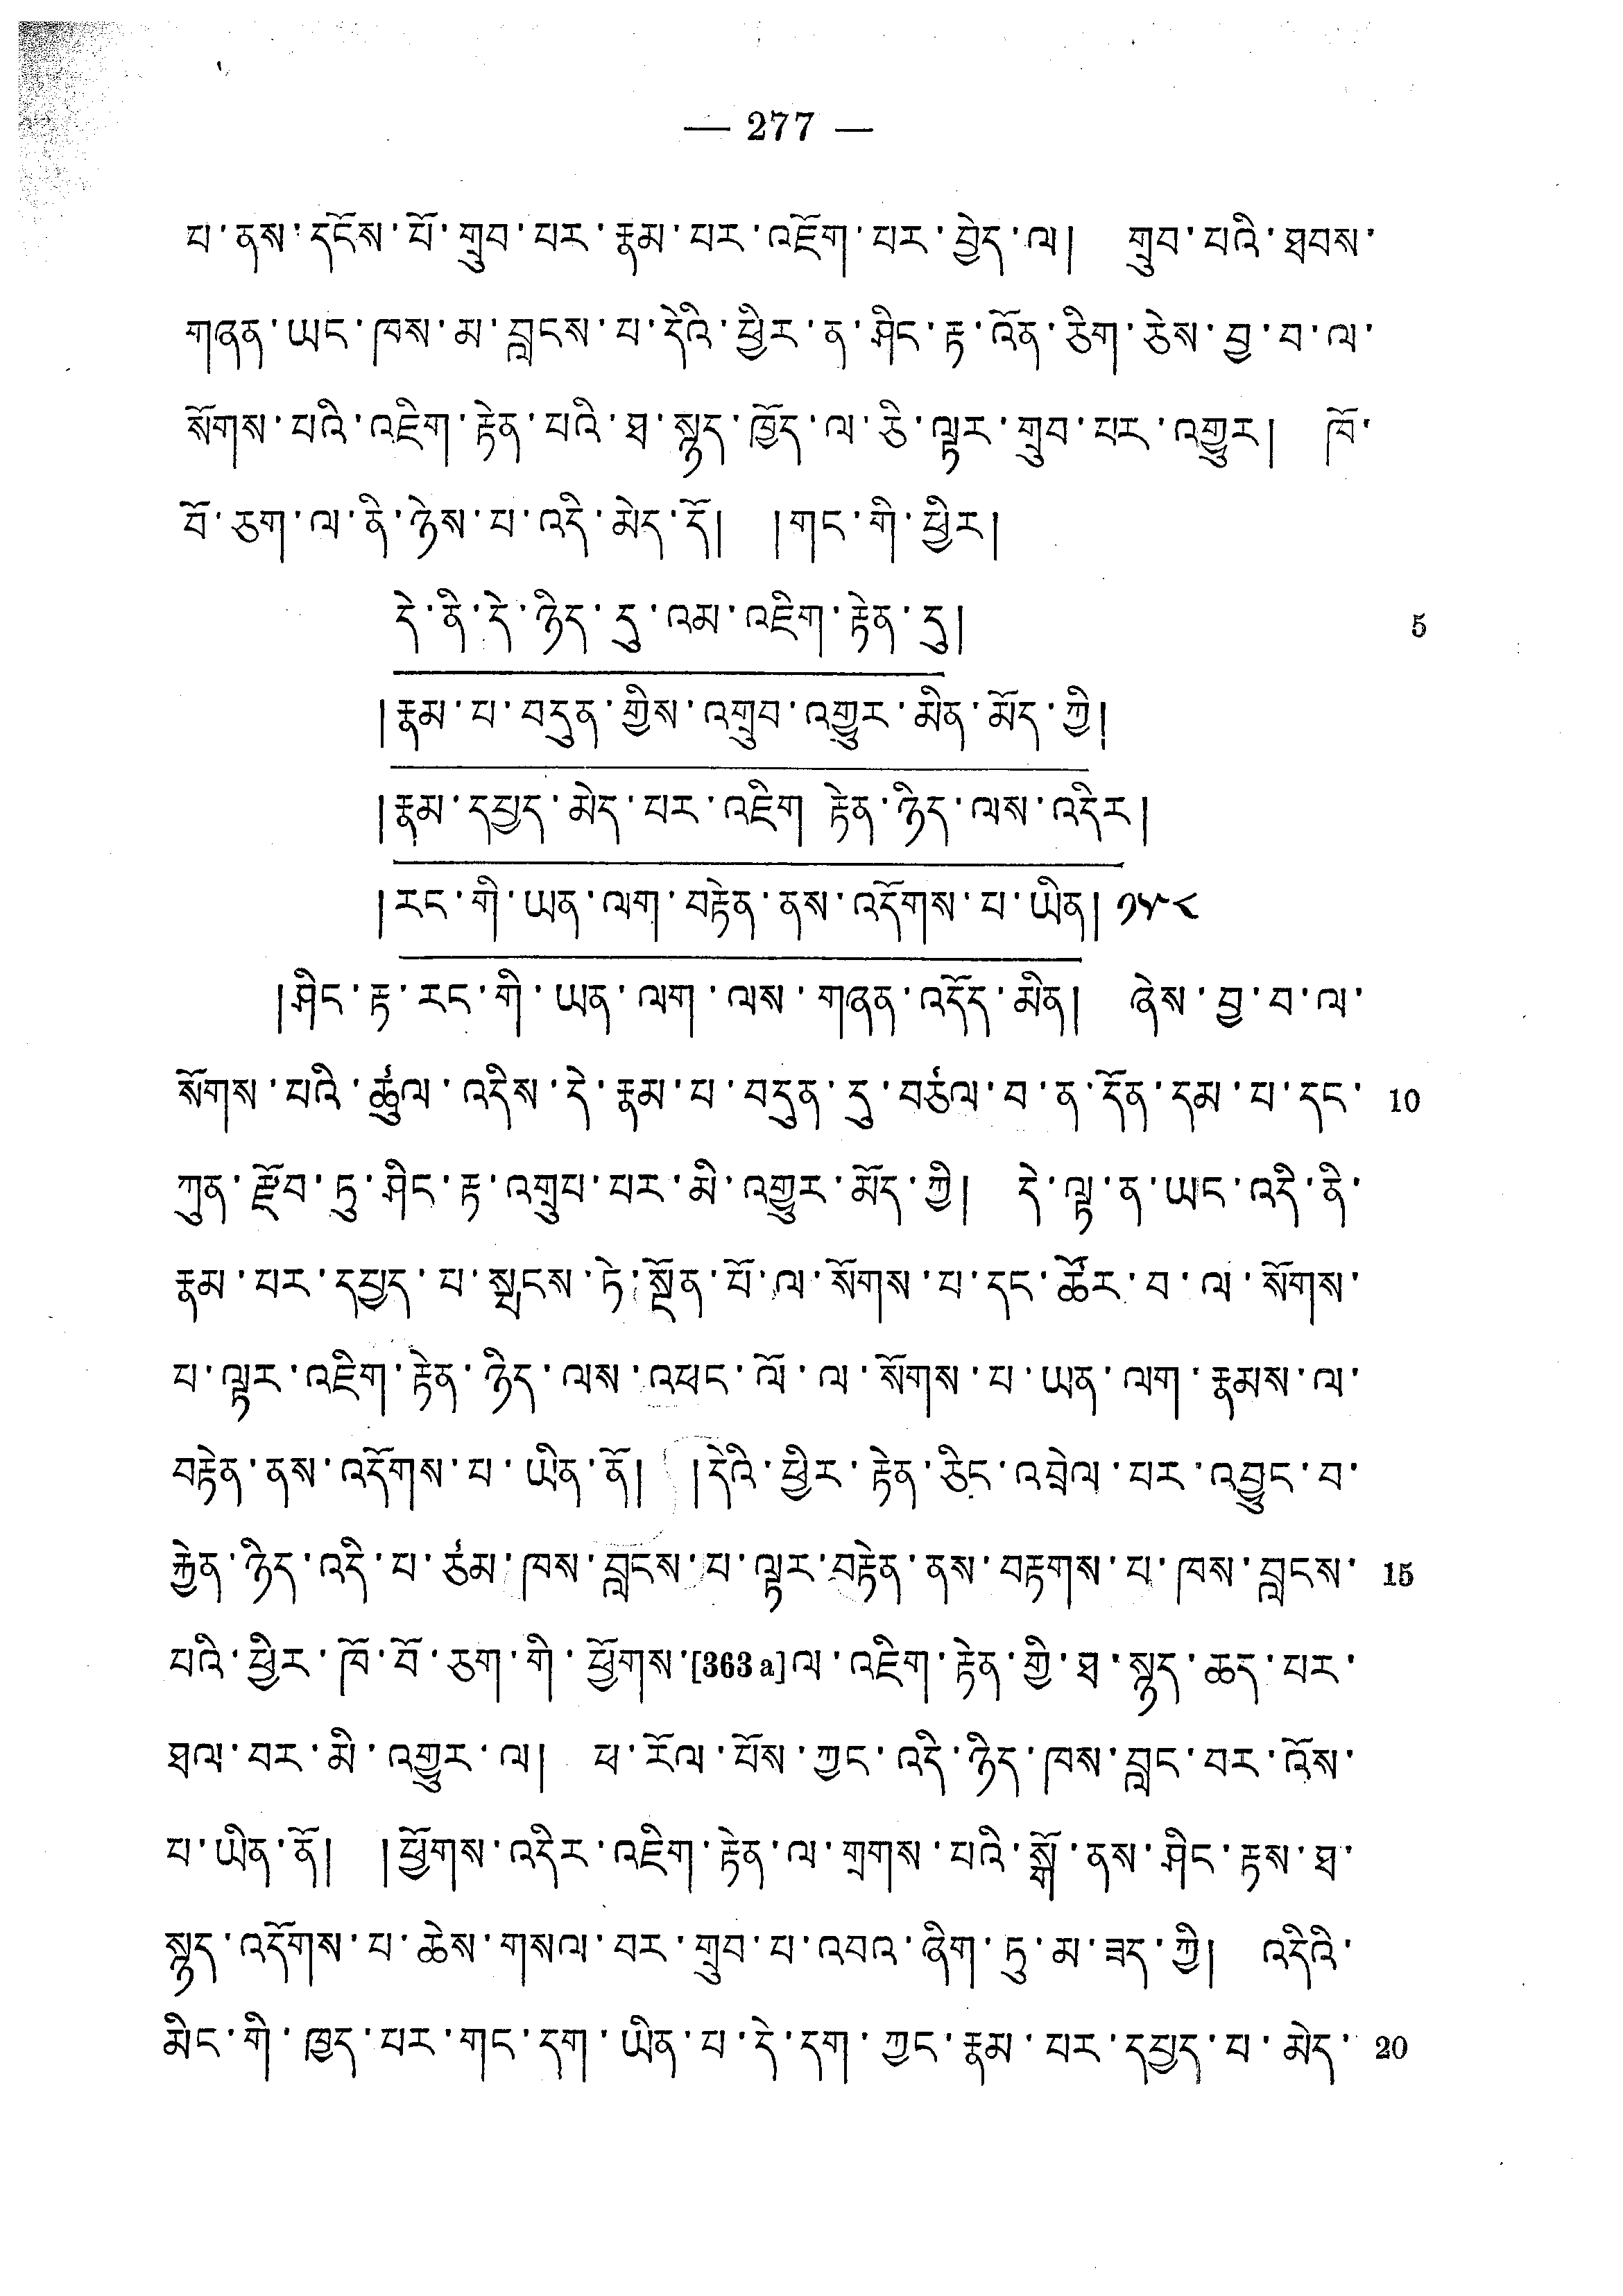 — 277 —
པ་ནས་དངོས་པོ་གྲུབ་པར་རྣམ་པར་འཇོག་པར་བྱེད་ལ། གྲུབ་པའི་ཐབས་
གཞན་ཡང་ཁས་མ་བླངས་པ་དེའི་ཕྱིར་ན་ཤིང་རྟ་འོན་ཅིག་ཅེས་བྱ་བ་ལ་
སོགས་པའི་འཇིག་རྟེན་པའི་ཐ་སྙད་ཁྱོད་ལ་ཅི་ལྟར་གྲུབ་པར་འགྱུར། ཁོ་
བོ་ཅག་ལ་ནི་ཉེས་པ་འདི་མེད་དོ། །གང་གི་ཕྱིར།
དེ་ནི་དེ་ཉིད་དུ་འམ་འཇིག་རྟེན་དུ། 5
།རྣམ་པ་བདུན་གྱིས་འགྲུབ་འགྱུར་མིན་མོད་ཀྱི།
།རྣམ་དཔྱད་མེད་པར་འཇིག རྟེན་ཉིད་ལས་འདིར།
།རང་གི་ཡན་ལག་བརྟེན་ནས་འདོགས་པ་ཡིན། ༡༥༨
།ཤིང་རྟ་རང་གི་ཡན་ལག་ལས་གཞན་འདོད་མིན། ཞེས་བྱ་བ་ལ་
སོགས་པའི་ཚུལ་འདིས་དེ་རྣམ་པ་བདུན་དུ་བཙལ་བ་ན་དོན་དམ་པ་དང་ 10
ཀུན་རྫོབ་ཏུ་ཤིང་རྟ་འགྲུབ་པར་མི་འགྱུར་མོད་ཀྱི། དེ་ལྟ་ན་ཡང་འདི་ནི་
རྣམ་པར་དཔྱད་པ་སྤངས་ཏེ་སྔོན་པོ་ལ་སོགས་པ་དང་ཚོར་བ་ལ་སོགས་
པ་ལྟར་འཇིག་རྟེན་ཉིད་ལས་འཕང་ལོ་ལ་སོགས་པ་ཡན་ལག་རྣམས་ལ་
བརྟེན་ནས་འདོགས་པ་ཡིན་ནོ། །དེའི་ཕྱིར་རྟེན་ཅིང་འབྲེལ་པར་འབྱུང་བ་
རྐྱེན་ཉིད་འདི་པ་ཙམ་ཁས་བླངས་པ་ལྟར་བརྟེན་ནས་བརྟགས་པ་ཁས་བླངས་ 15
པའི་ཕྱིར་ཁོ་བོ་ཅག་གི་ཕྱོགས་[363 a]ལ་འཇིག་རྟེན་གྱི་ཐ་སྙད་ཆད་པར་
ཐལ་བར་མི་འགྱུར་ལ། ཕ་རོལ་པོས་ཀྱང་འདི་ཉིད་ཁས་བླང་བར་འོས་
པ་ཡིན་ནོ། །ཕྱོགས་འདིར་འཇིག་རྟེན་ལ་གྲགས་པའི་སྒོ་ནས་ཤིང་རྟས་ཐ་
སྙད་འདོགས་པ་ཆེས་གསལ་བར་གྲུབ་པ་འབའ་ཞིག་ཏུ་མ་ཟད་ཀྱི། འདིའི་
མིང་གི་ཁྱད་པར་གང་དག་ཡིན་པ་དེ་དག་ཀྱང་རྣམ་པར་དཔྱད་པ་མེད་ 20